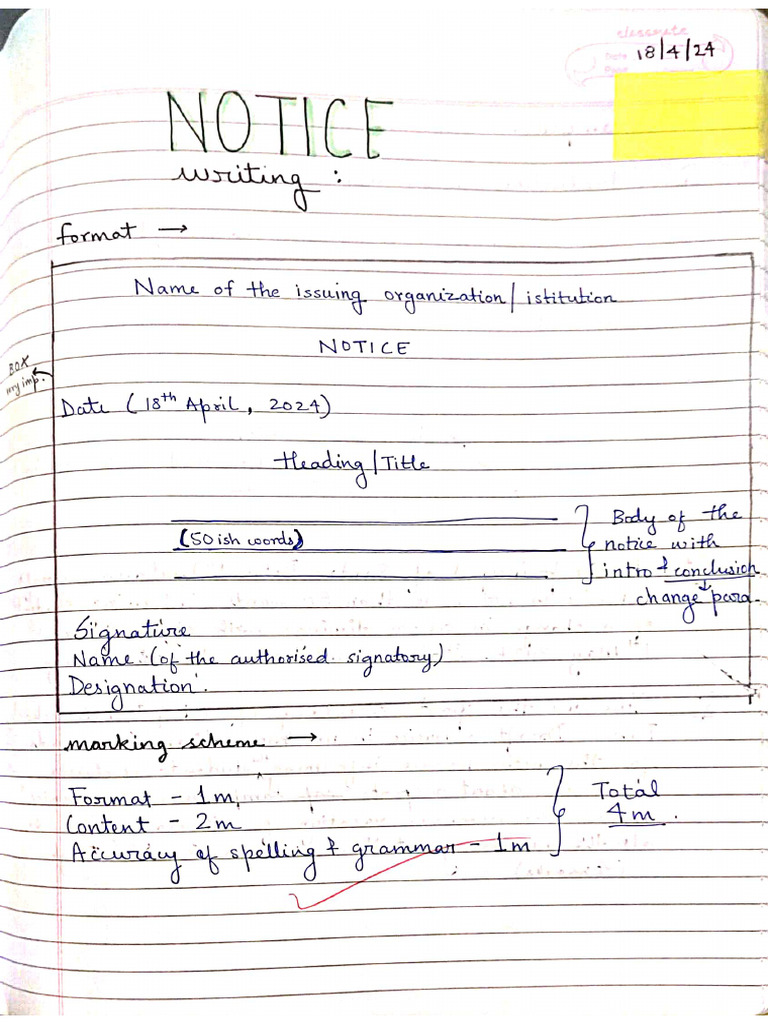 classmate
Date
Page
18/4/24
NOTICE
writing :
format →
Name of the issuing organization/istitution
NOTICE
BOX
very imp.
Date (18th April, 2024)
Heading/Title
(50 ish words)
Body of the
notice with
intro & conclusion
change para.
Signature
Name (of the authorised signatory)
Designation.
marking scheme →
Format - 1m
Content - 2m
Accuracy of spelling & grammar - 1m
Total
4m.